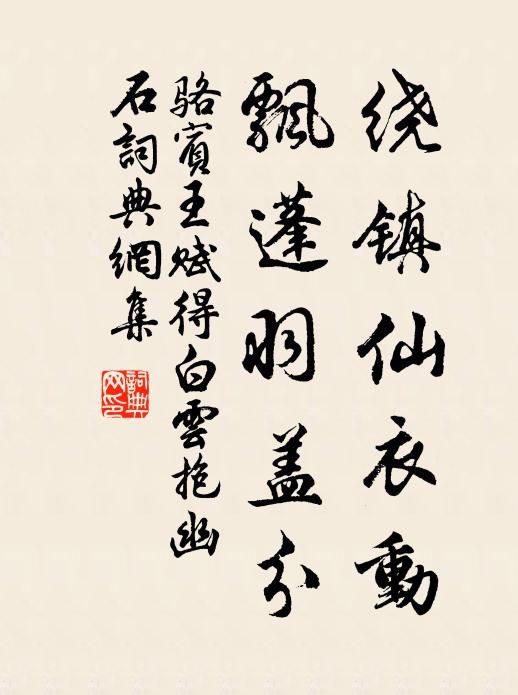 绕镇仙衣動
飄蓬羽盖分
骆賓王赋得白雲抱幽
石詞典網集
詞典
网印